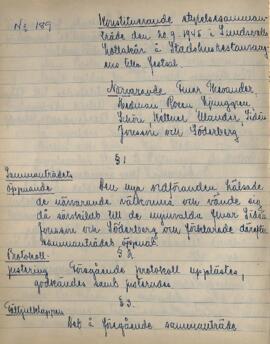 No 189
Konstituerande styrelsesamman-
träde den 20.9.1945 i Sundsvalls
å Stadshusrestaurang-
ens lilla festsal.
Närvarande Einar
Hedman Rosén Ljunggren
Schön, Kellner Ulander, Lidén
Jonsson och Söderberg
§ 1
Sammanträdets
öppnande Den nya ordföranden hälsade
de närvarande välkomna och vände sig
då särskildt till de nyinvalda Einar Lidén
Jonsson och Söderberg och förklarade därefter
sammanträdet öppnat.
Protokoll- § 2.
justering Föregående protokoll upplästes,
godkändes samt justerades.
§ 3.
Det å föregående sammanträde